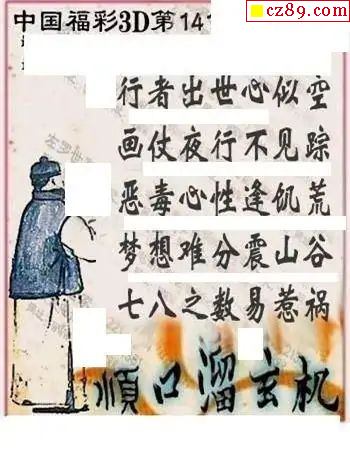 cz89.com
中国福彩3D第141
行者出世心似空
画仗夜行不见踪
恶毒心性逢饥荒
梦想难分震山谷
七八之数易惹祸
顺口溜玄机